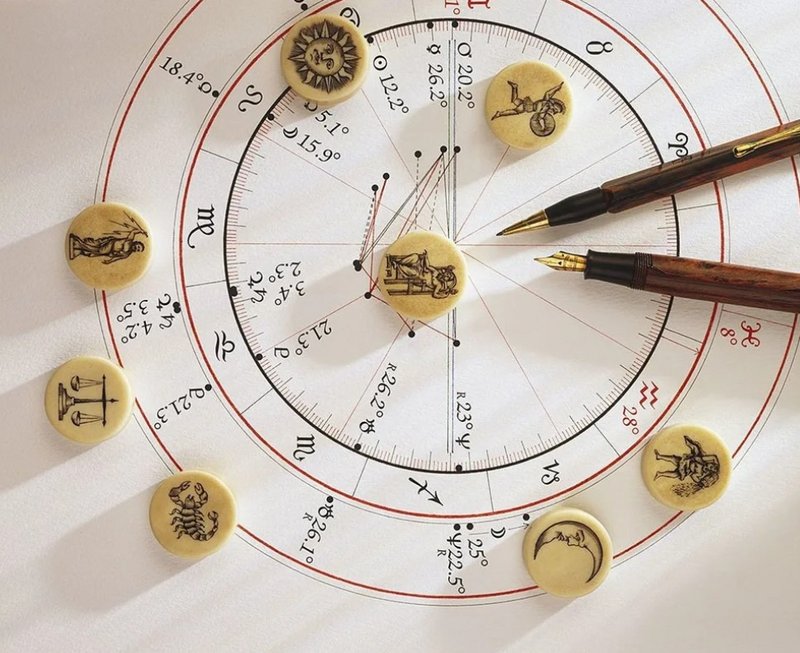 ♊
1°
♉
♂ 20.2°
☿ 26.2°
☉ 12.2°
5.1°
☽ 15.9°
18.4° ☊
♌
♈
♍
♃ 2.3°
♄ 3.4°
♃ 4.2°
♄ 3.5°
♎
21.3° ♇
♇ 21.3°
R 26.2° ♅
R 23° ♆
♏
♐
♑
♒ 28°
♓ 8°
♅ 26.1° R
♆ 22.5° R
☽ 25°